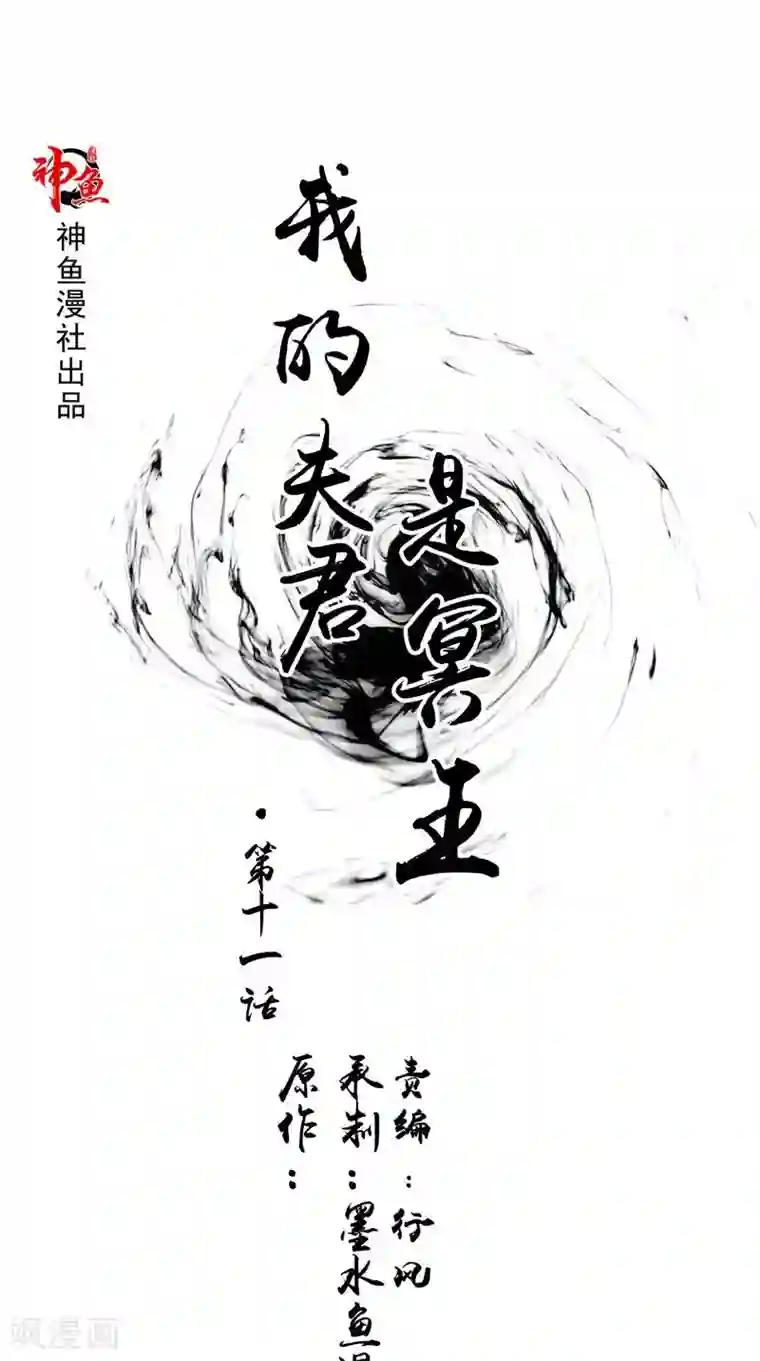 神鱼
神鱼漫社出品
我的夫君
是冥王
·第十一话
原作：
承制：墨水鱼漫
责编：行风
飒漫画